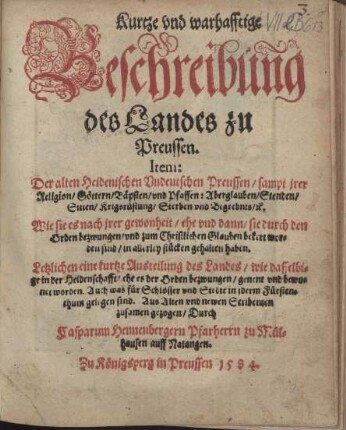 Kurtze vnd warhafftige
Beschreibung
des Landes zu
Preussen.
Item:
Der alten Heidenischen Vndeutschen Preussen / sampt jrer
Religion / Göttern / Bäpsten / vnd Pfaffen: Aberglauben / Stenden /
Sitten / Krigsrüstung / Sterben vnd Begrebnis / ꝛc.
Wie sie es nach jrer gewonheit / ehe vnd dann / sie durch den
Orden bezwungen / vnd zum Christlichen Glauben bekert wor-
den sind / in allerley stücken gehalten haben.
Letzlichen eine kurtze Austeilung des Landes / wie dasselbi-
ge in der Heidenschafft / ehe es der Orden bezwungen / genent vnd bewo-
net worden. Auch was für Schlösser vnd Stedte in jdem Fürsten-
thum gelegen sind. Aus Alten vnd newen Scribenten
zusamen gezogen / Durch
Casparum Hennenbergern Pfarherrn zu Mül-
hausen auff Natangen.
Zu Königsperg in Preussen 1584.